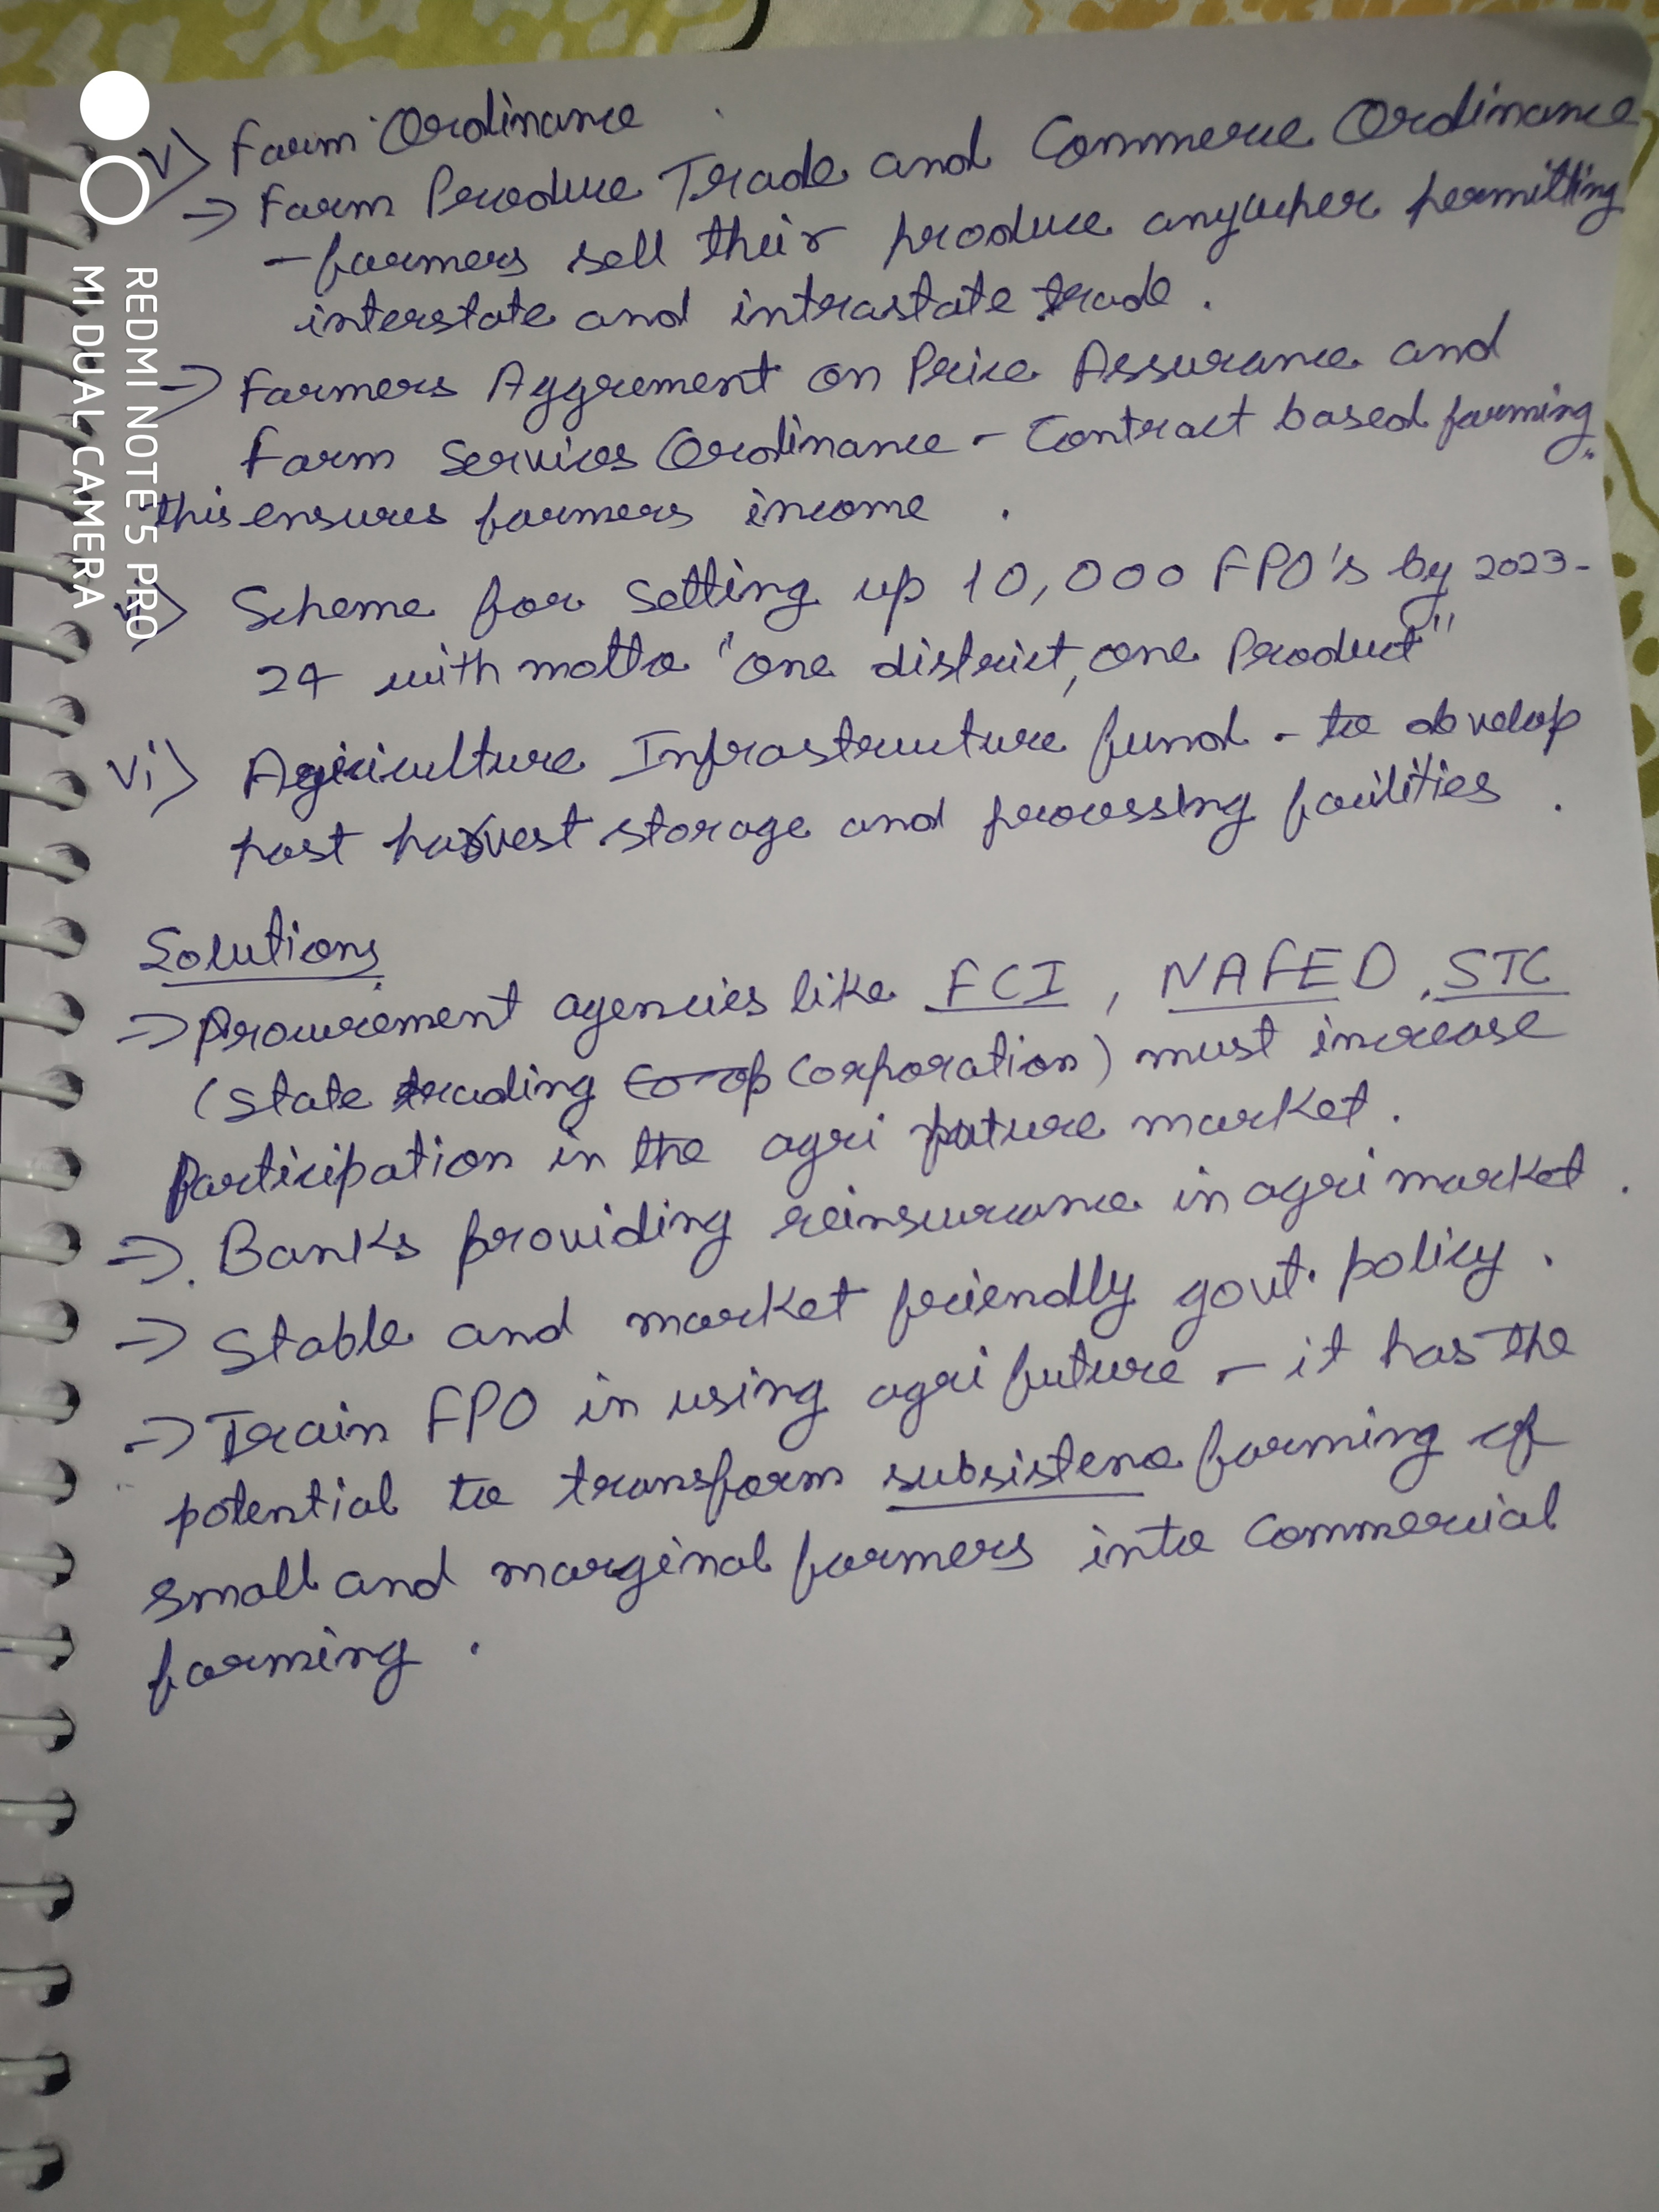 v) Farm Ordinance
=> Farm Produce Trade and Commerce Ordinance
- farmers sell their produce anywher permitting
interstate and intrastate trade.
=> Farmers Aggrement on Price Assurance and
Farm Services Ordinance - Contract based farming.
this ensures farmers income.
Scheme for setting up 10,000 FPO's by 2023-
24 with motto "one district, one Product"
vi) Agriculture Infrastructure fund - to develop
post harvest storage and processing facilities.
Solutions
=> Procurement agencies like FCI, NAFED, STC
(state trading Co-op Corporation) must increase
Participation in the agri future market.
=> Banks providing reinsurance in agri market.
=> Stable and market friendly govt. policy.
=> Train FPO in using agri future - it has the
potential to transform subsistence farming of
small and marginal farmers into commercial
farming.
REDMI NOTE 5 PRO
MI DUAL CAMERA